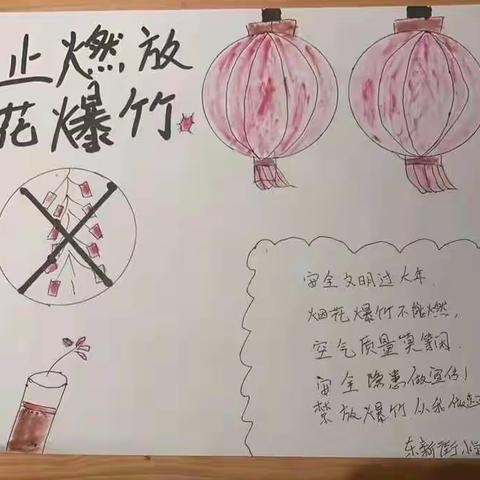 止燃放
花爆竹
安全文明过大年,
烟花爆竹不能燃,
空气质量莫等闲.
安全隐患做宣传!
禁放爆竹从我做起
东新街小学